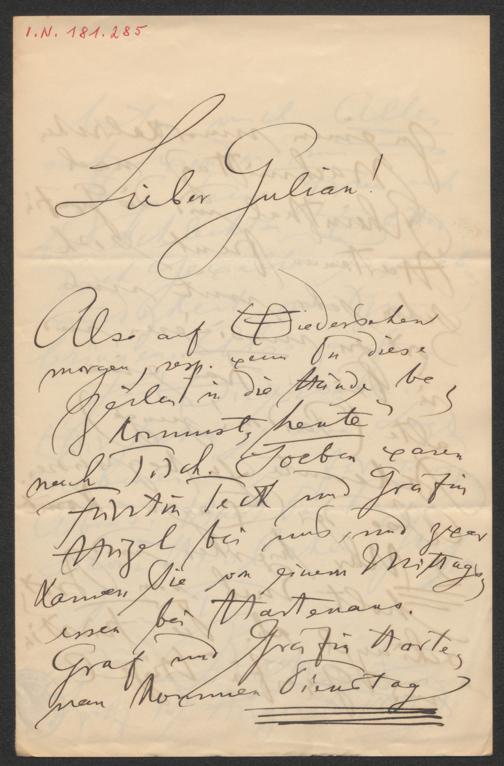 I.N. 181.285
Lieber Julian!
Also auf Wiedersehen
morgen, resp. wenn Du diese
Zeilen in die Hände be-
kommst, heute
nach Tisch. Soeben waren
Fürstin Teck und Gräfin
Hügel bei uns, und zwar
kamen Sie von einem Mittag-
essen bei Hartenaus.
Graf und Gräfin Harte-
nau kommen Dienstag